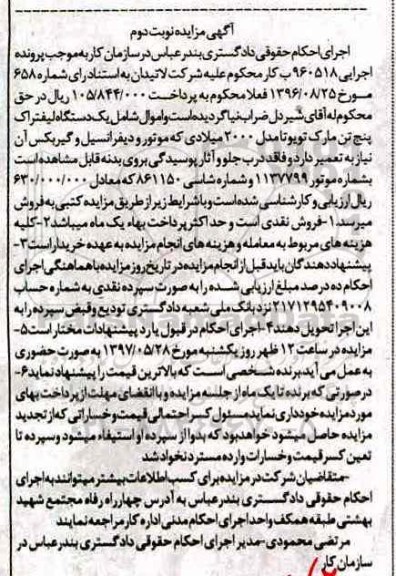 آگهی مزایده نوبت دوم
اجرای احکام حقوقی دادگستری بندرعباس در سازمان کار به موجب پرونده
اجرایی ۹۶۰۵۱۸ ب کار محکوم علیه شرکت لاتیدان به استناد رای شماره ۶۵۸
مورخ ۱۳۹۶/۰۸/۲۵ فعلا محکوم به پرداخت ۱۰۵/۸۴۴/۰۰۰ ریال در حق
محکوم له آقای شیردل ضراب نیا گردیده است و اموال شامل یک دستگاه لیفتراک
پنج تن مارک تویوتا مدل ۲۰۰۰ میلادی که موتور و دیفرانسیل و گیربکس آن
نیاز به تعمیر دارد و فاقد درب جلو و آثار پوسیدگی بر روی بدنه قابل مشاهده است
بشماره موتور ۱۱۳۷۷۹۹ و شماره شاسی ۸۶۱۱۵۰ که معادل ۶۳۰/۰۰۰/۰۰۰
ریال ارزیابی و کارشناسی شده است و با شرایط زیر از طریق مزایده کتبی به فروش
میرسد. ۱-فروش نقدی است و حداکثر پرداخت بهاء یک ماه میباشد ۲-کلیه
هزینه های مربوط به معامله و هزینه های انجام مزایده به عهده خریدار است ۳-
پیشنهاد دهندگان باید قبل از انجام مزایده در تاریخ روز مزایده با هماهنگی اجرای
احکام ده درصد مبلغ ارزیابی شده را به صورت سپرده نقدی به شماره حساب
۲۱۷۱۲۹۵۴۰۹۰۰۸ نزد بانک ملی شعبه دادگستری تودیع و قبض سپرده را به
این اجرا تحویل دهند ۴-اجرای احکام در قبول یا رد پیشنهادات مختار است ۵-
مزایده در ساعت ۱۲ ظهر روز یکشنبه مورخ ۱۳۹۷/۰۵/۲۸ به صورت حضوری
به عمل می آید برنده شخصی است که بالاترین قیمت را پیشنهاد نماید ۶-
در صورتی که برنده تا یک ماه از جلسه مزایده و با انقضای مهلت از پرداخت بهای
مورد مزایده خودداری نماید مسئول کسر احتمالی قیمت و خساراتی که از تجدید
مزایده حاصل میشود خواهد بود که بدوا از سپرده او استیفاء میشود و سپرده تا
تعیین کسر قیمت و خسارات وارده مسترد نخواهد شد
-متقاضیان شرکت در مزایده برای کسب اطلاعات بیشتر میتوانند به اجرای
احکام حقوقی دادگستری بندرعباس به آدرس چهارراه رفاه مجتمع شهید
بهشتی طبقه همکف واحد اجرای احکام مدنی اداره کار مراجعه نمایند
مرتضی محمودی-مدیر اجرای احکام حقوقی دادگستری بندرعباس در
سازمان کار